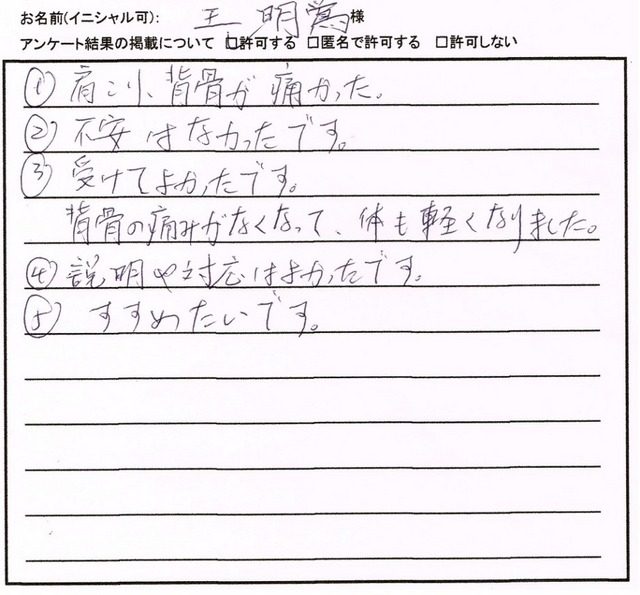 お名前(イニシャル可): 王 明 様
アンケート結果の掲載について □許可する □匿名で許可する □許可しない
① 肩こり、背骨が痛かった。
② 不安はなかったです。
③ 受けてよかったです。
背骨の痛みがなくなって、体も軽くなりました。
④ 説明や対応はよかったです。
⑤ すすめたいです。